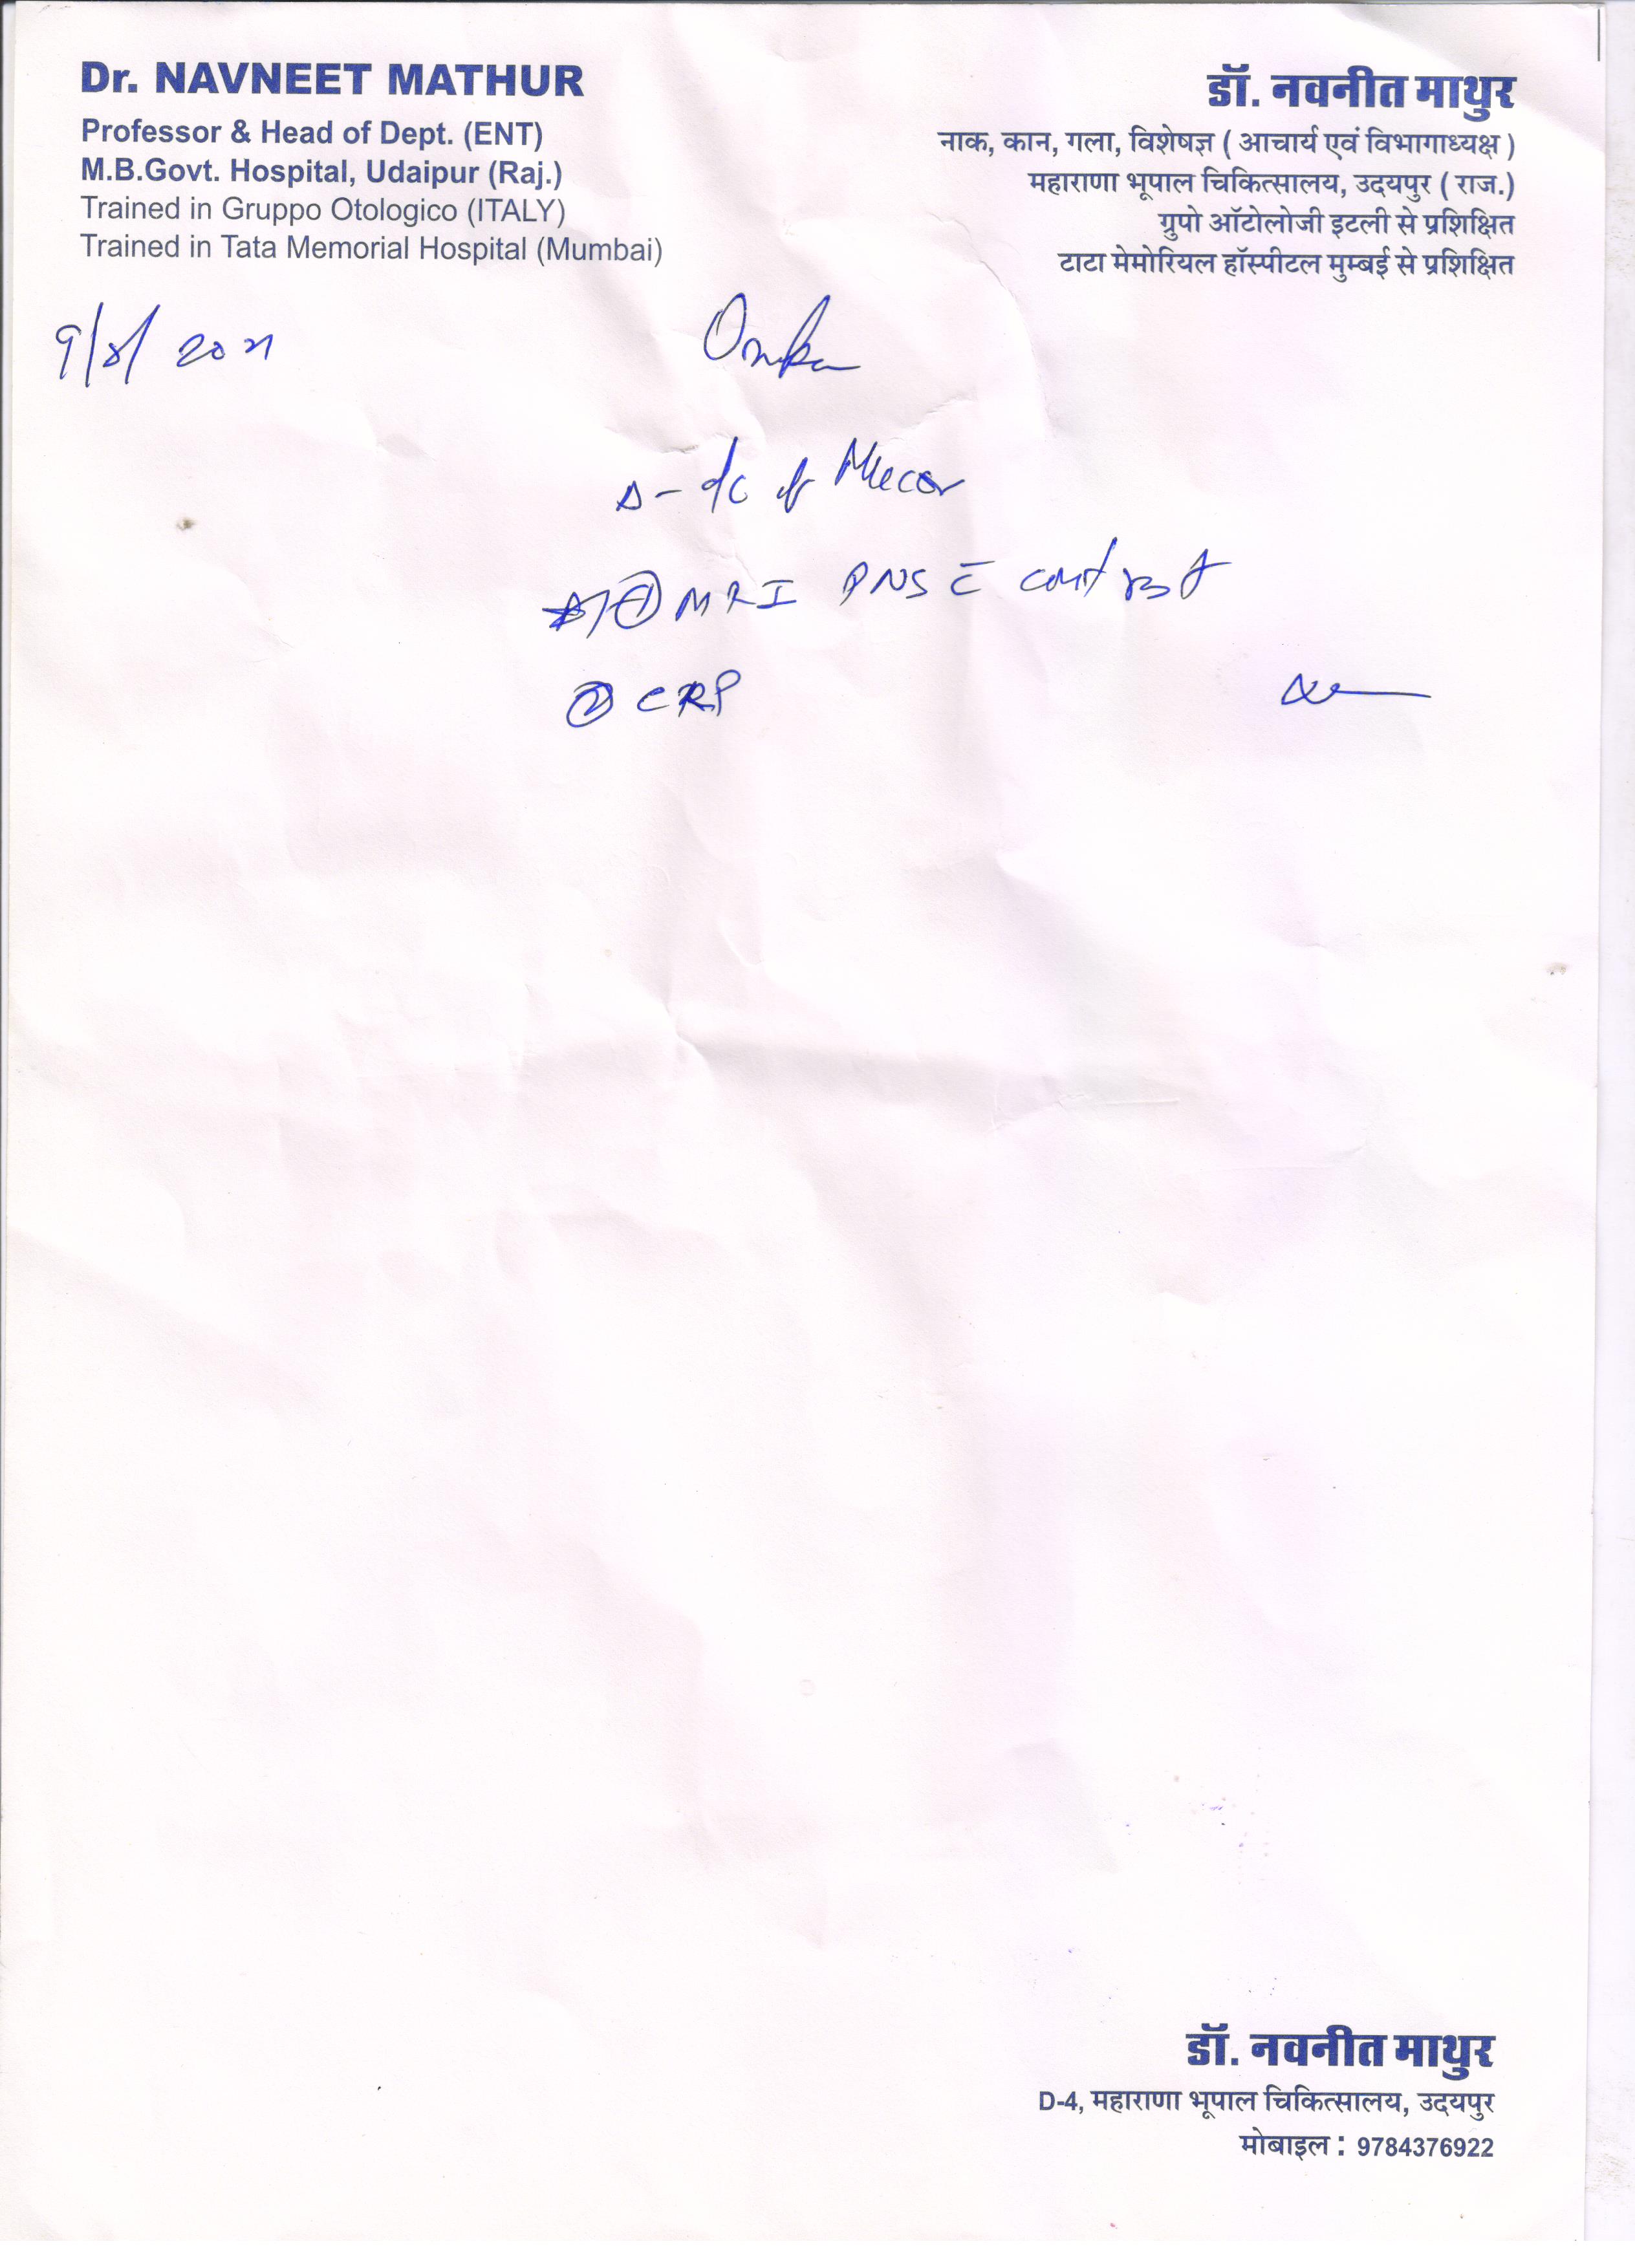 Dr. NAVNEET MATHUR
Professor & Head of Dept. (ENT)
M.B.Govt. Hospital, Udaipur (Raj.)
Trained in Gruppo Otologico (ITALY)
Trained in Tata Memorial Hospital (Mumbai)
डॉ. नवनीत माथुर
नाक, कान, गला, विशेषज्ञ ( आचार्य एवं विभागाध्यक्ष )
महाराणा भूपाल चिकित्सालय, उदयपुर ( राज.)
ग्रुपो ऑटोलोजी इटली से प्रशिक्षित
टाटा मेमोरियल हॉस्पीटल मुम्बई से प्रशिक्षित
9/8/2021
① MRI PNS c̄ contrast
② CRP
डॉ. नवनीत माथुर
D-4, महाराणा भूपाल चिकित्सालय, उदयपुर
मोबाइल : 9784376922